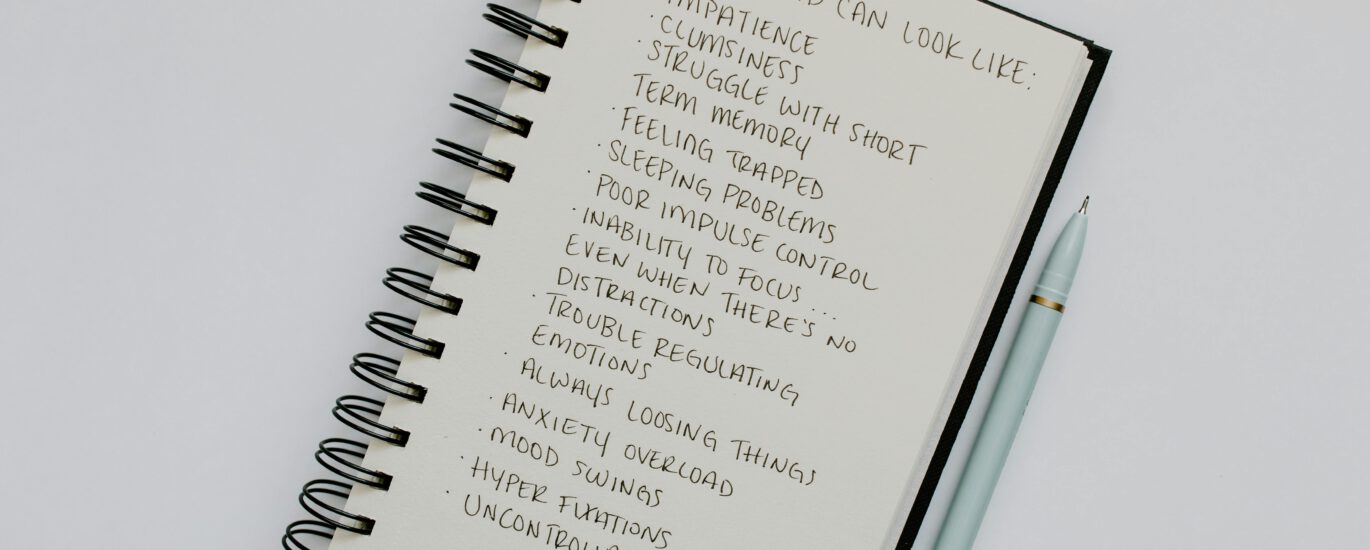 CAN LOOK LIKE:
IMPATIENCE
· CLUMSINESS
· STRUGGLE WITH SHORT
TERM MEMORY
· FEELING TRAPPED
· SLEEPING PROBLEMS
· POOR IMPULSE CONTROL
· INABILITY TO FOCUS ...
EVEN WHEN THERE'S NO
DISTRACTIONS
· TROUBLE REGULATING
EMOTIONS
· ALWAYS LOOSING THINGS
· ANXIETY OVERLOAD
· MOOD SWINGS
· HYPER FIXATIONS